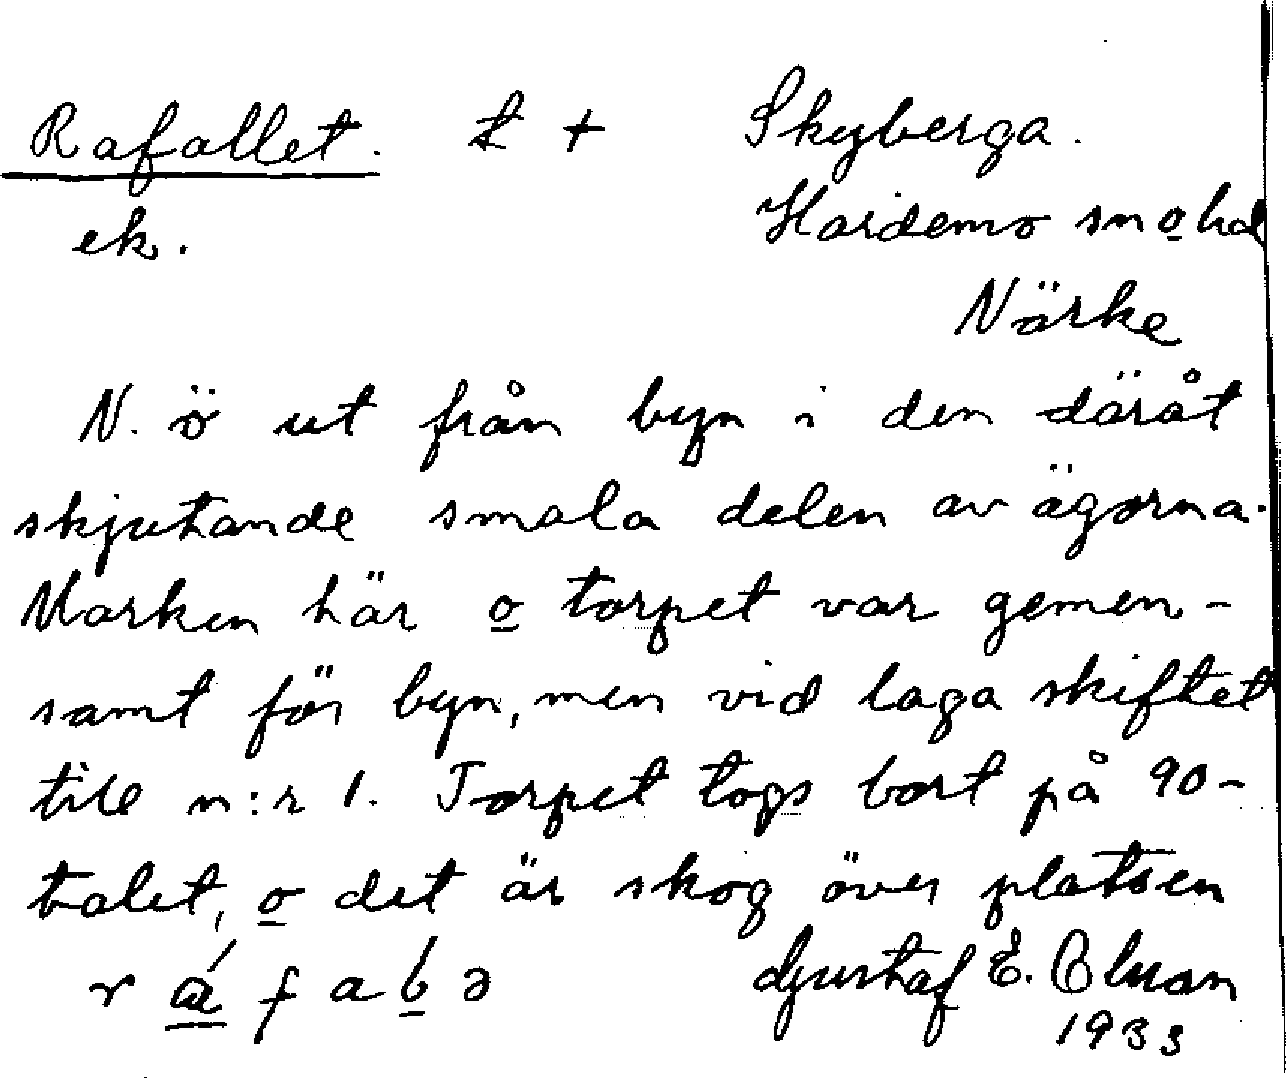 Rafallet. t + Skyberga.
ek. Hardemo sn o hd
Närke
N. ö ut från byn i den däråt
skjutande smala delen av ägorna.
Marken här o torpet var gemen-
samt för byn, men vid laga skiftet
till n:r 1. Torpet togs bort på 90-
talet, o det är skog över platsen
Gustaf E.
1933